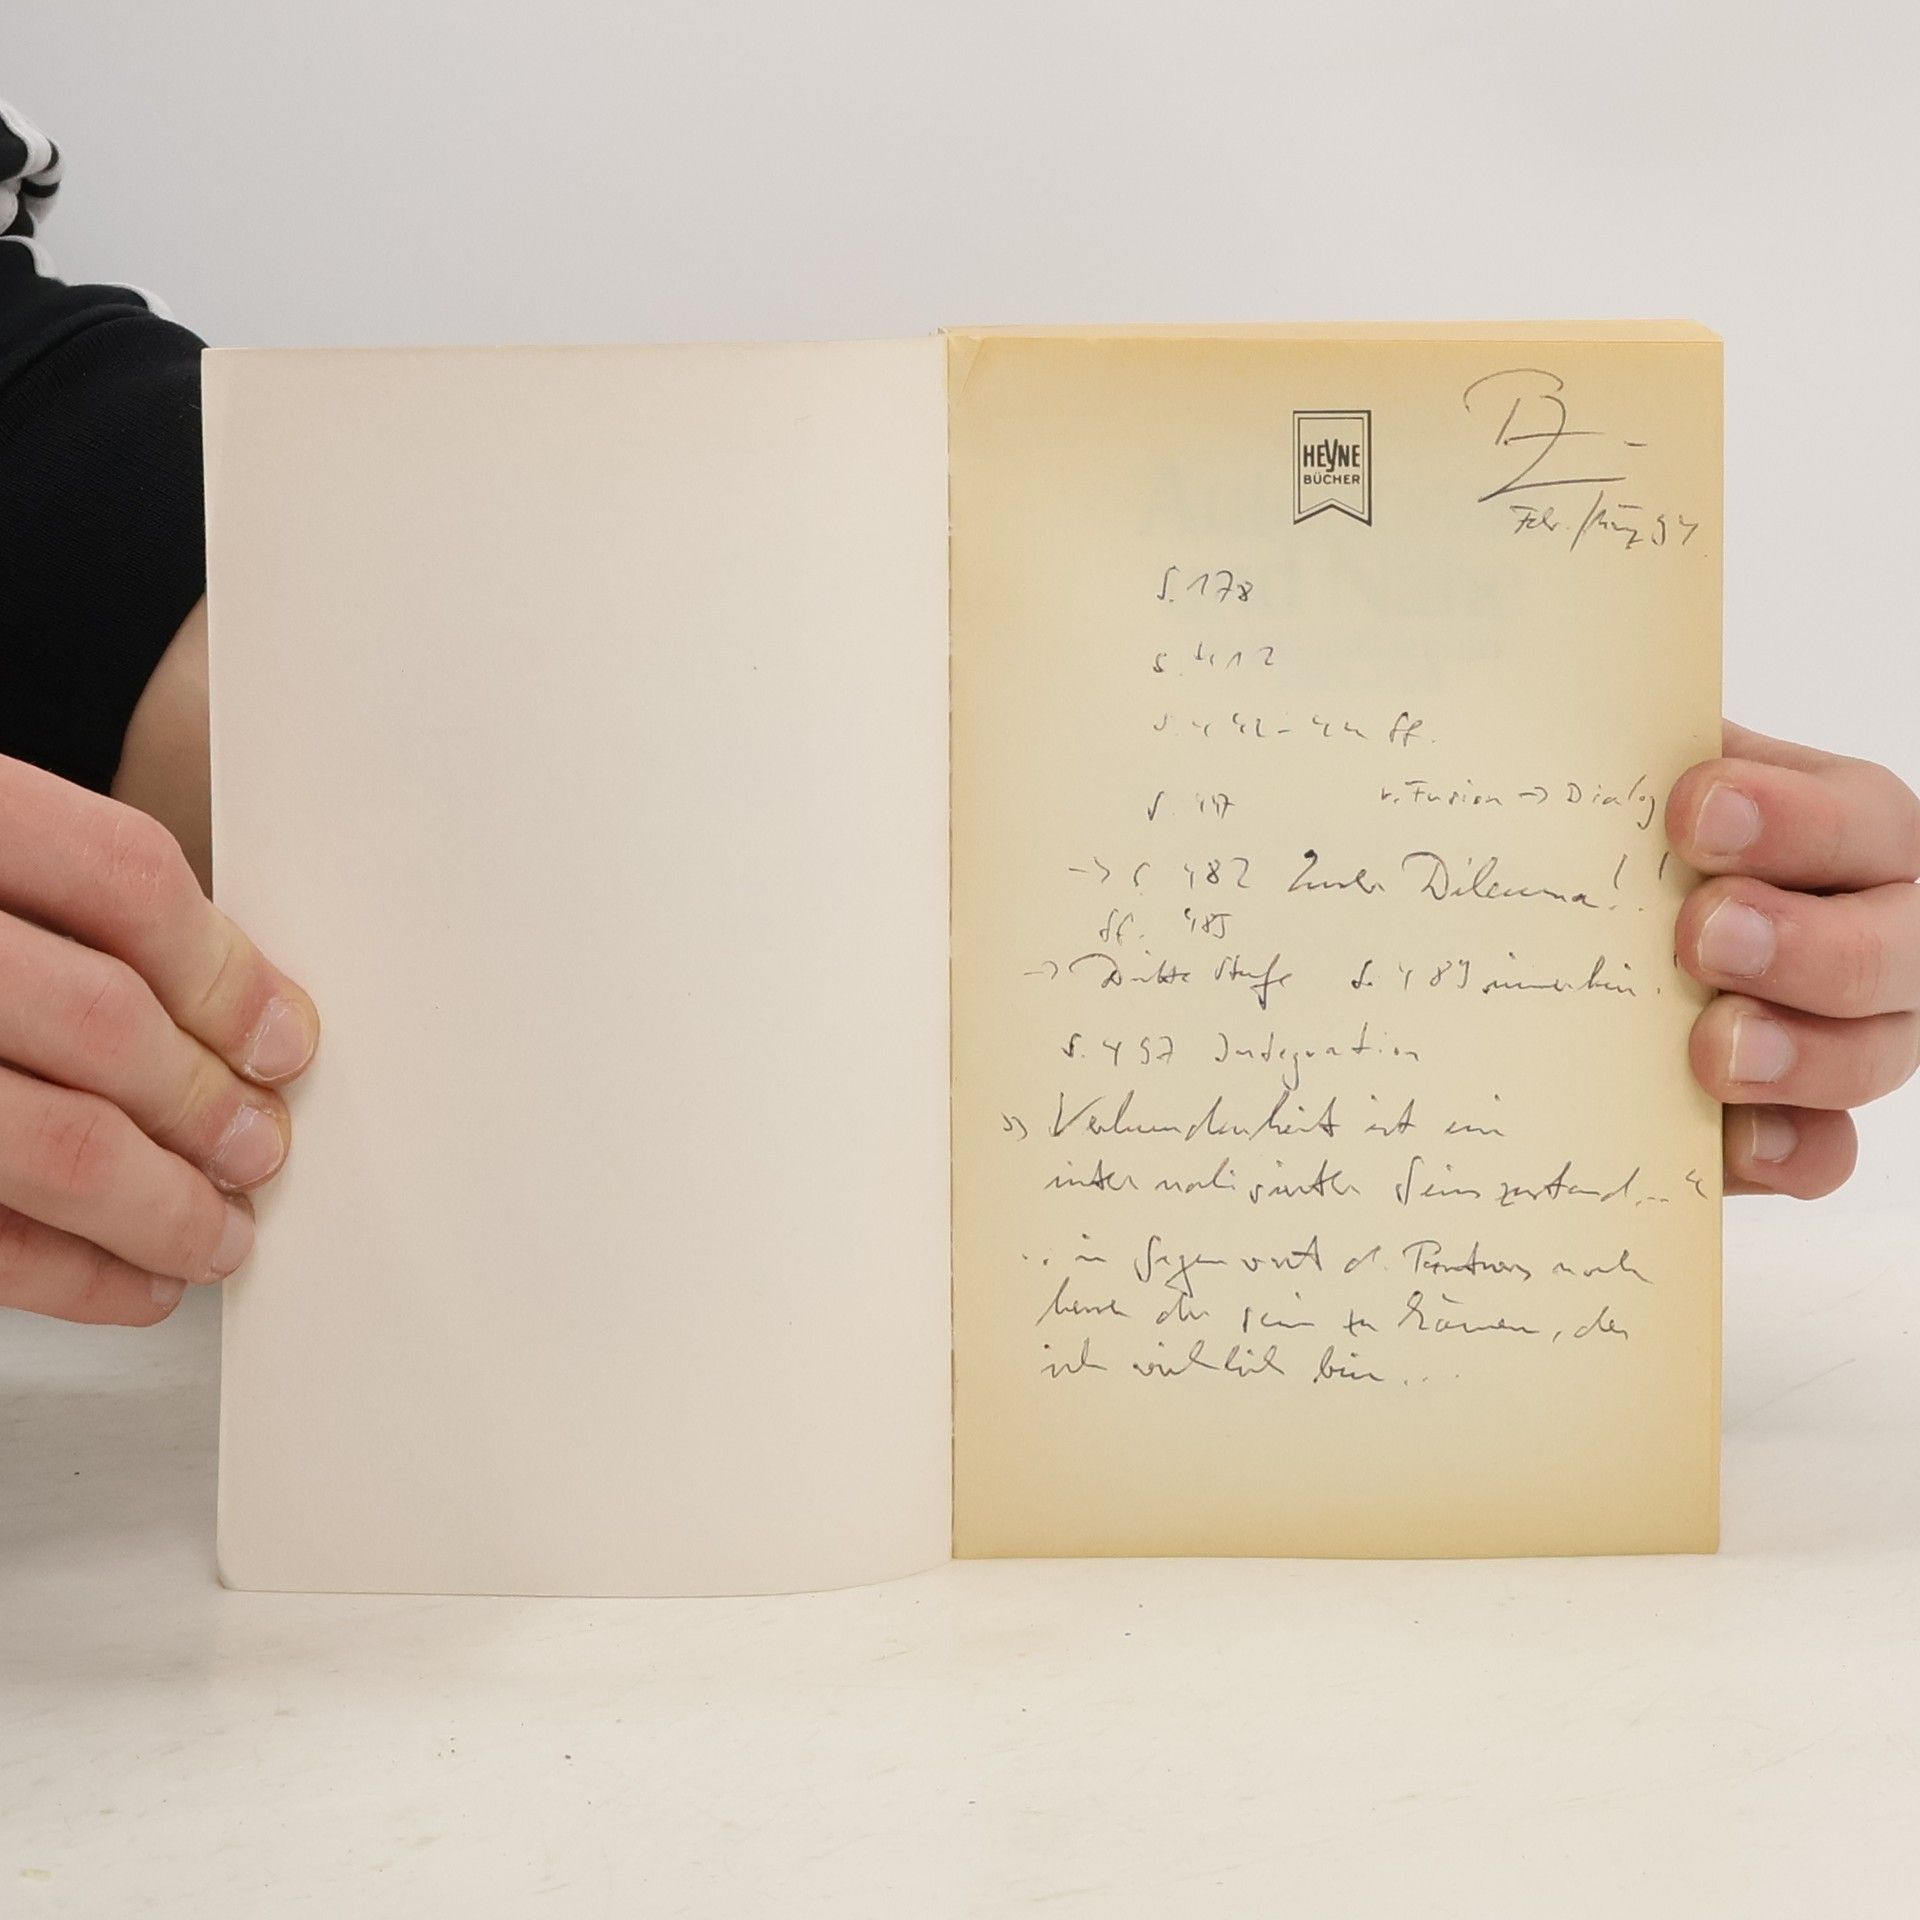 HEYNE
BÜCHER
Febr./März 94
S. 178
S. 412
S. 442-44 ff.
S. 447 v. Fusion -> Dialog
-> S. 482 Dilemma!!
ff. 485
-> Dritte Stufe S. 489 immerhin!
S. 497 Integration
» Verbundenheit ist ein
internalisierter Seinszustand... «
.. in Gegenwart d. Partners noch
der sein zu können, der
ich wirklich bin...